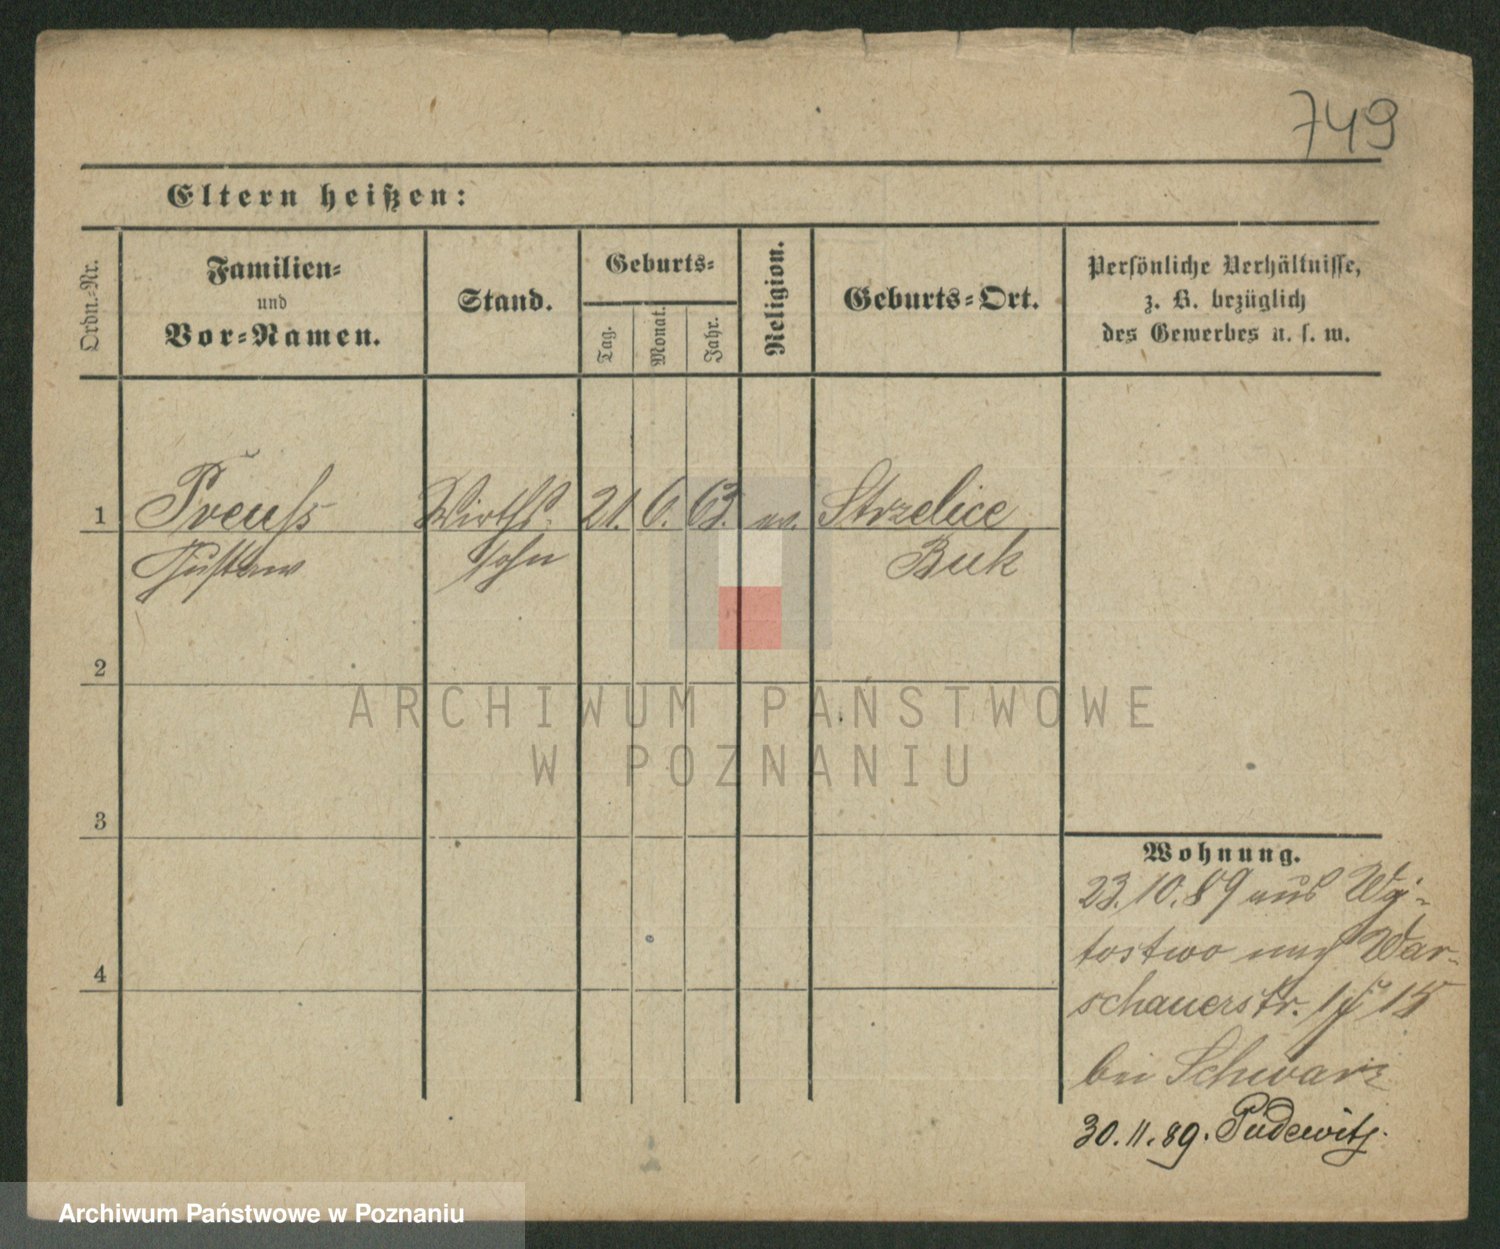 749
Eltern heißen:
Ordn.-Nr.
Familien- und Vor-Namen.
Stand.
Geburts-
Tag.
Monat.
Jahr.
Religion.
Geburts-Ort.
Persönliche Verhältnisse,
z. B. bezüglich
des Gewerbes u. s. w.
1 Preuß Wirths- 21. 6. 63. ev. Strzelice
Gustaw sohn Buk
2
3
4
Wohnung.
23.10.89 aus Wy-
tostwo nach War-
schauerstr. 15
bei Schwarz
30.11.89. Pudewitz.
ARCHIWUM PAŃSTWOWE
W POZNANIU
Archiwum Państwowe w Poznaniu